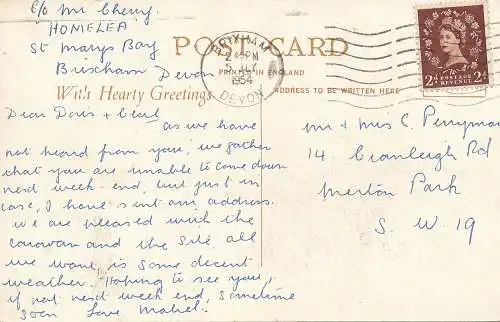 c/o Mr Cherry.
HOMELEA
St Marys Bay
Brixham Devon
POST CARD
PRINTED IN ENGLAND
With Hearty Greetings
ADDRESS TO BE WRITTEN HERE
BRIXHAM
2 45PM
1954
DEVON
POSTAGE REVENUE
2D 2D
Dear Doris + Cecil
as we have
not heard from you, we gather
that you are unable to come down
next week-end, but just in
case, I have sent our address.
We are pleased with the
caravan and the site, all
we want is some decent
weather. Hoping to see you,
if not next week end, sometime
soon Love Mabel.
Mr & Mrs C. Perryman
14 Cranleigh Rd
Merton Park
S.W. 19